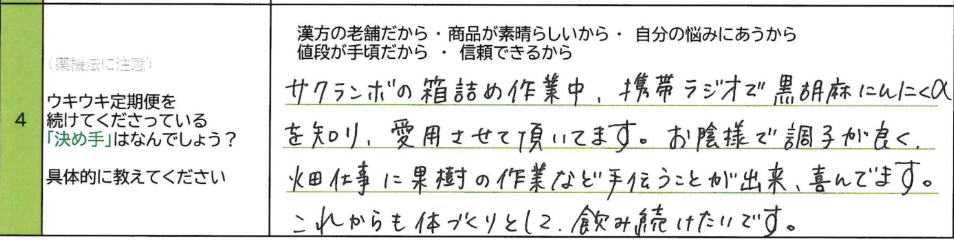 漢方の老舗だから ・ 商品が素晴らしいから ・ 自分の悩みにあうから
値段が手頃だから ・ 信頼できるから
(薬機法に注意)
4
ウキウキ定期便を
続けてくださっている
「決め手」はなんでしょう？
具体的に教えてください
サクランボの箱詰め作業中、携帯ラジオで黒胡麻にんにくα
を知り、愛用させて頂いてます。お陰様で調子が良く、
畑仕事に果樹の作業など手伝うことが出来、喜んでます。
これからも体づくりとして、飲み続けたいです。